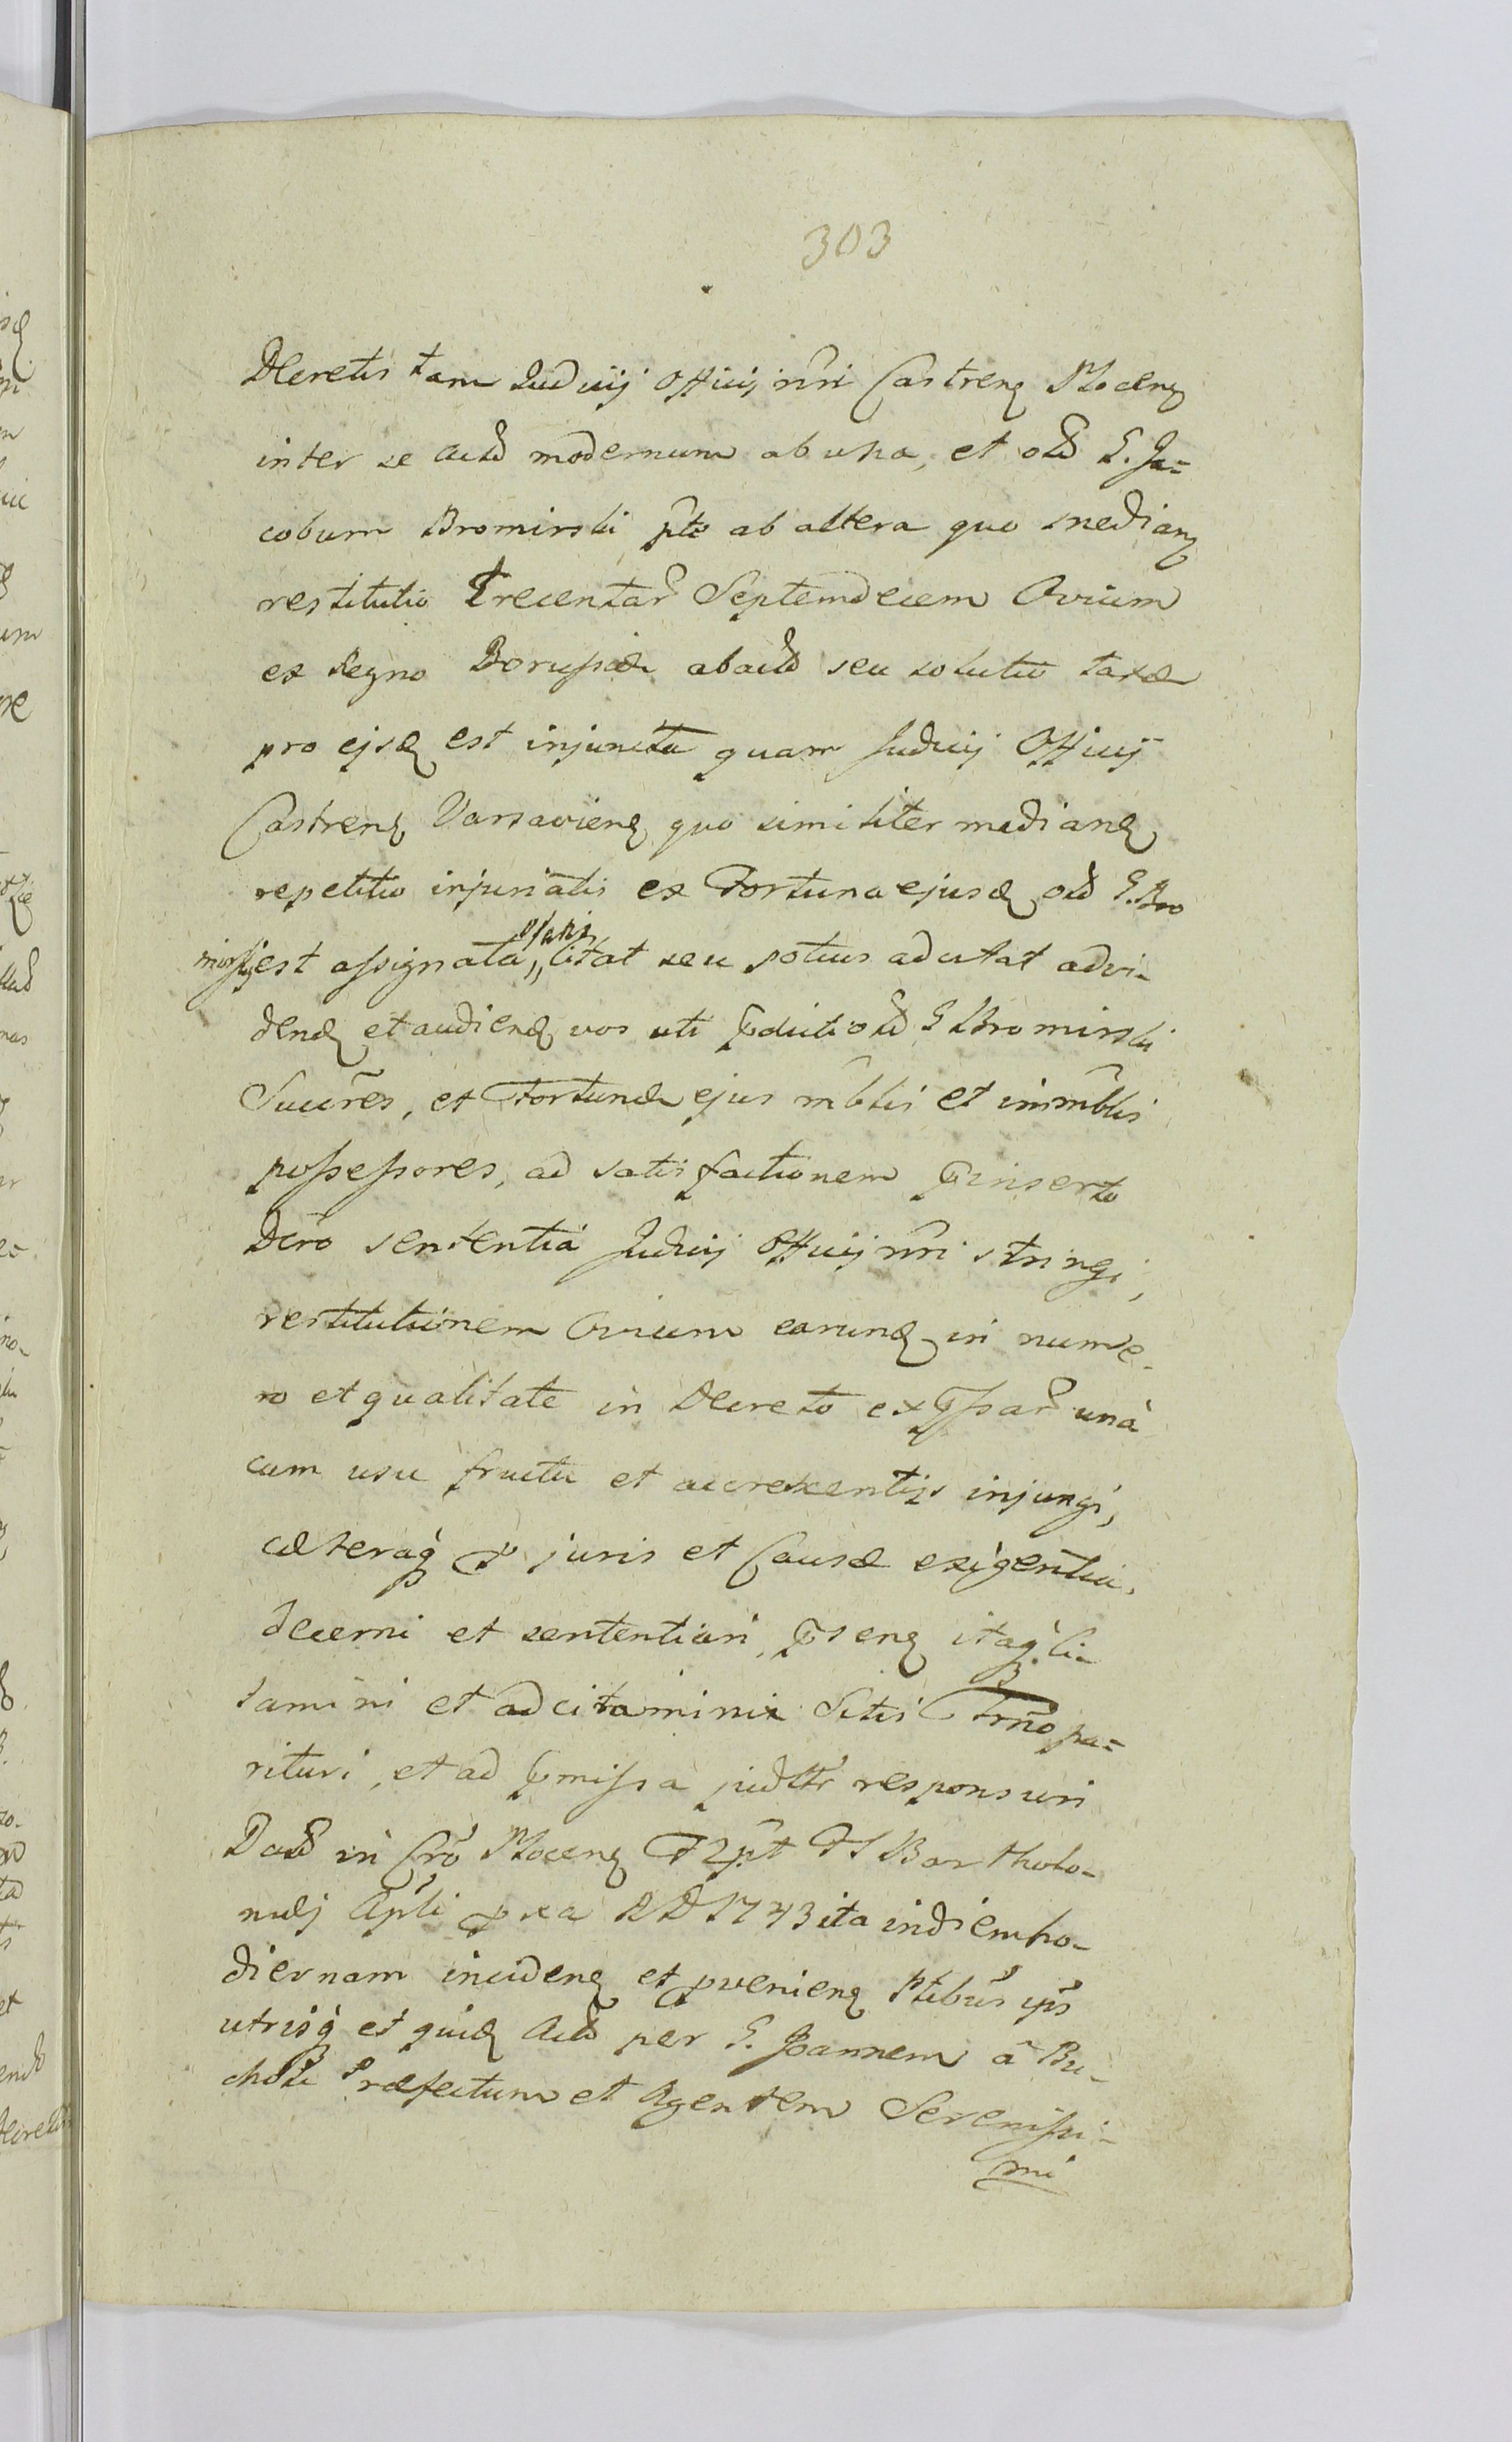 303
Decretis tam Judicij Officij nr̃i Castrenꝫ Plocenꝫ
inter se actd modernum ab una, et old G. Ja=
cobum Bromirski pte ab altera quo medianꝫ
restitutio Trecentar Septemdecem Ovium
ex Regno Borussiæ abactd seu solutio taxæ
pro ejsdꝫ est injuncta quam Judicij Officij
Castrenꝫ Varsavienꝫ quo similiter medianꝫ
repetitio injuriatis ex Fortuna ejusdꝫ old G. Bro
mirskj est assignata, citat seu potius adcitat advi-
dendꝫ et audiendꝫ vos uti p̱dicti old G Bromirski
Succr̃es, et Fortunæ ejus mblis et immblis
possessores, ad satisfactionem p̱inserto
Dcro sententiâ Judicij Officij nr̃i stringi,
restitutionem Ovium earundꝫ in nume-
ro et qualitate in Decreto expressar unà
cum usu fructu et accrescentijs injungi,
cæteraq̃ p juris et Causæ exigentia,
decerni et sententiari, p̱senꝫ itaq̃ ci-
tamini et adcitamini Sitis Trño pa=
rituri, et ad p̱missa judltr responsuri
Datd in Cr̃o Plocenꝫ F 2 pt F S Bartholo-
mæj Apli pxa A D 1743 ita in diem ho-
diernam incidenꝫ et pvenienꝫ Ptibus ips
utrisq̃ et quidꝫ Actd per G. Joannem à Bu-
choltz Præfectum et Agentem Serenissi-
mi